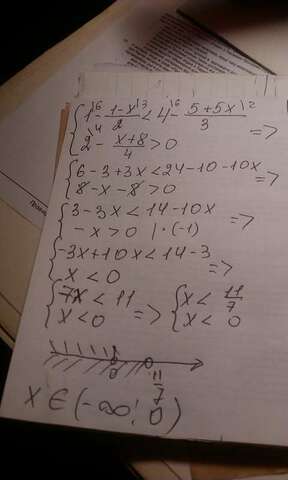 { 1\6 - (1-x)\3/2 < 4\6 - (5+5x)\2/3 =>
2\4 - (x+8)/4 > 0
{ 6-3+3x<24-10-10x =>
8-x-8>0
{ 3-3x<14-10x =>
-x>0 |·(-1)
{ -3x+10x<14-3 =>
x<0
{ 7x<11 => { x<11/7
x<0 x<0
0 11/7
x∈(-∞; 0)